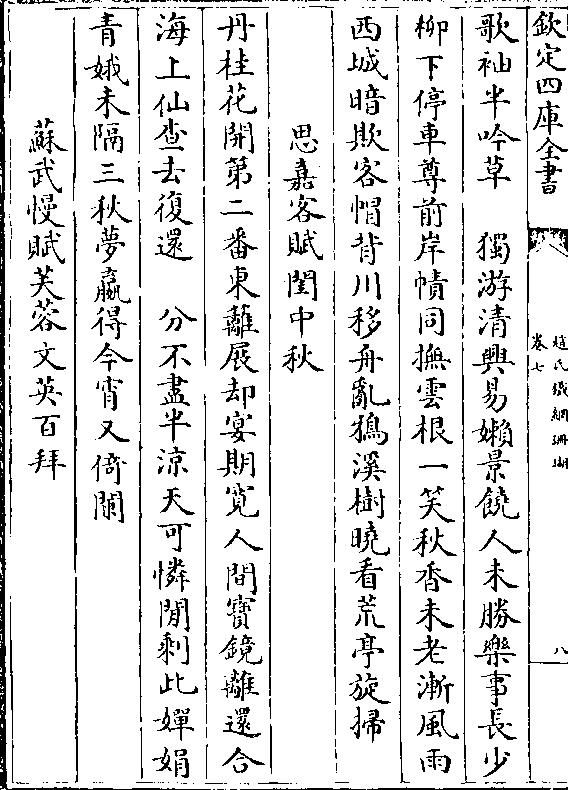 欽定四庫全書
趙氏鐵網珊瑚
卷七
八
歌袖半吟草　獨游清興易嬾景饒人未勝樂事長少
柳下停車尊前岸幘同撫雲根一笑秋香未老漸風雨
西城暗欺客帽背川移舟亂鵶溪樹曉看荒亭旋掃
思嘉客賦閏中秋
丹桂花開第二番東籬展却宴期寛人間寳鏡離還合
海上仙查去復還　分不盡半涼天可憐閒剩此嬋娟
青娥未隔三秋夢贏得今宵又倚闌
蘇武慢賦芙蓉文英百拜